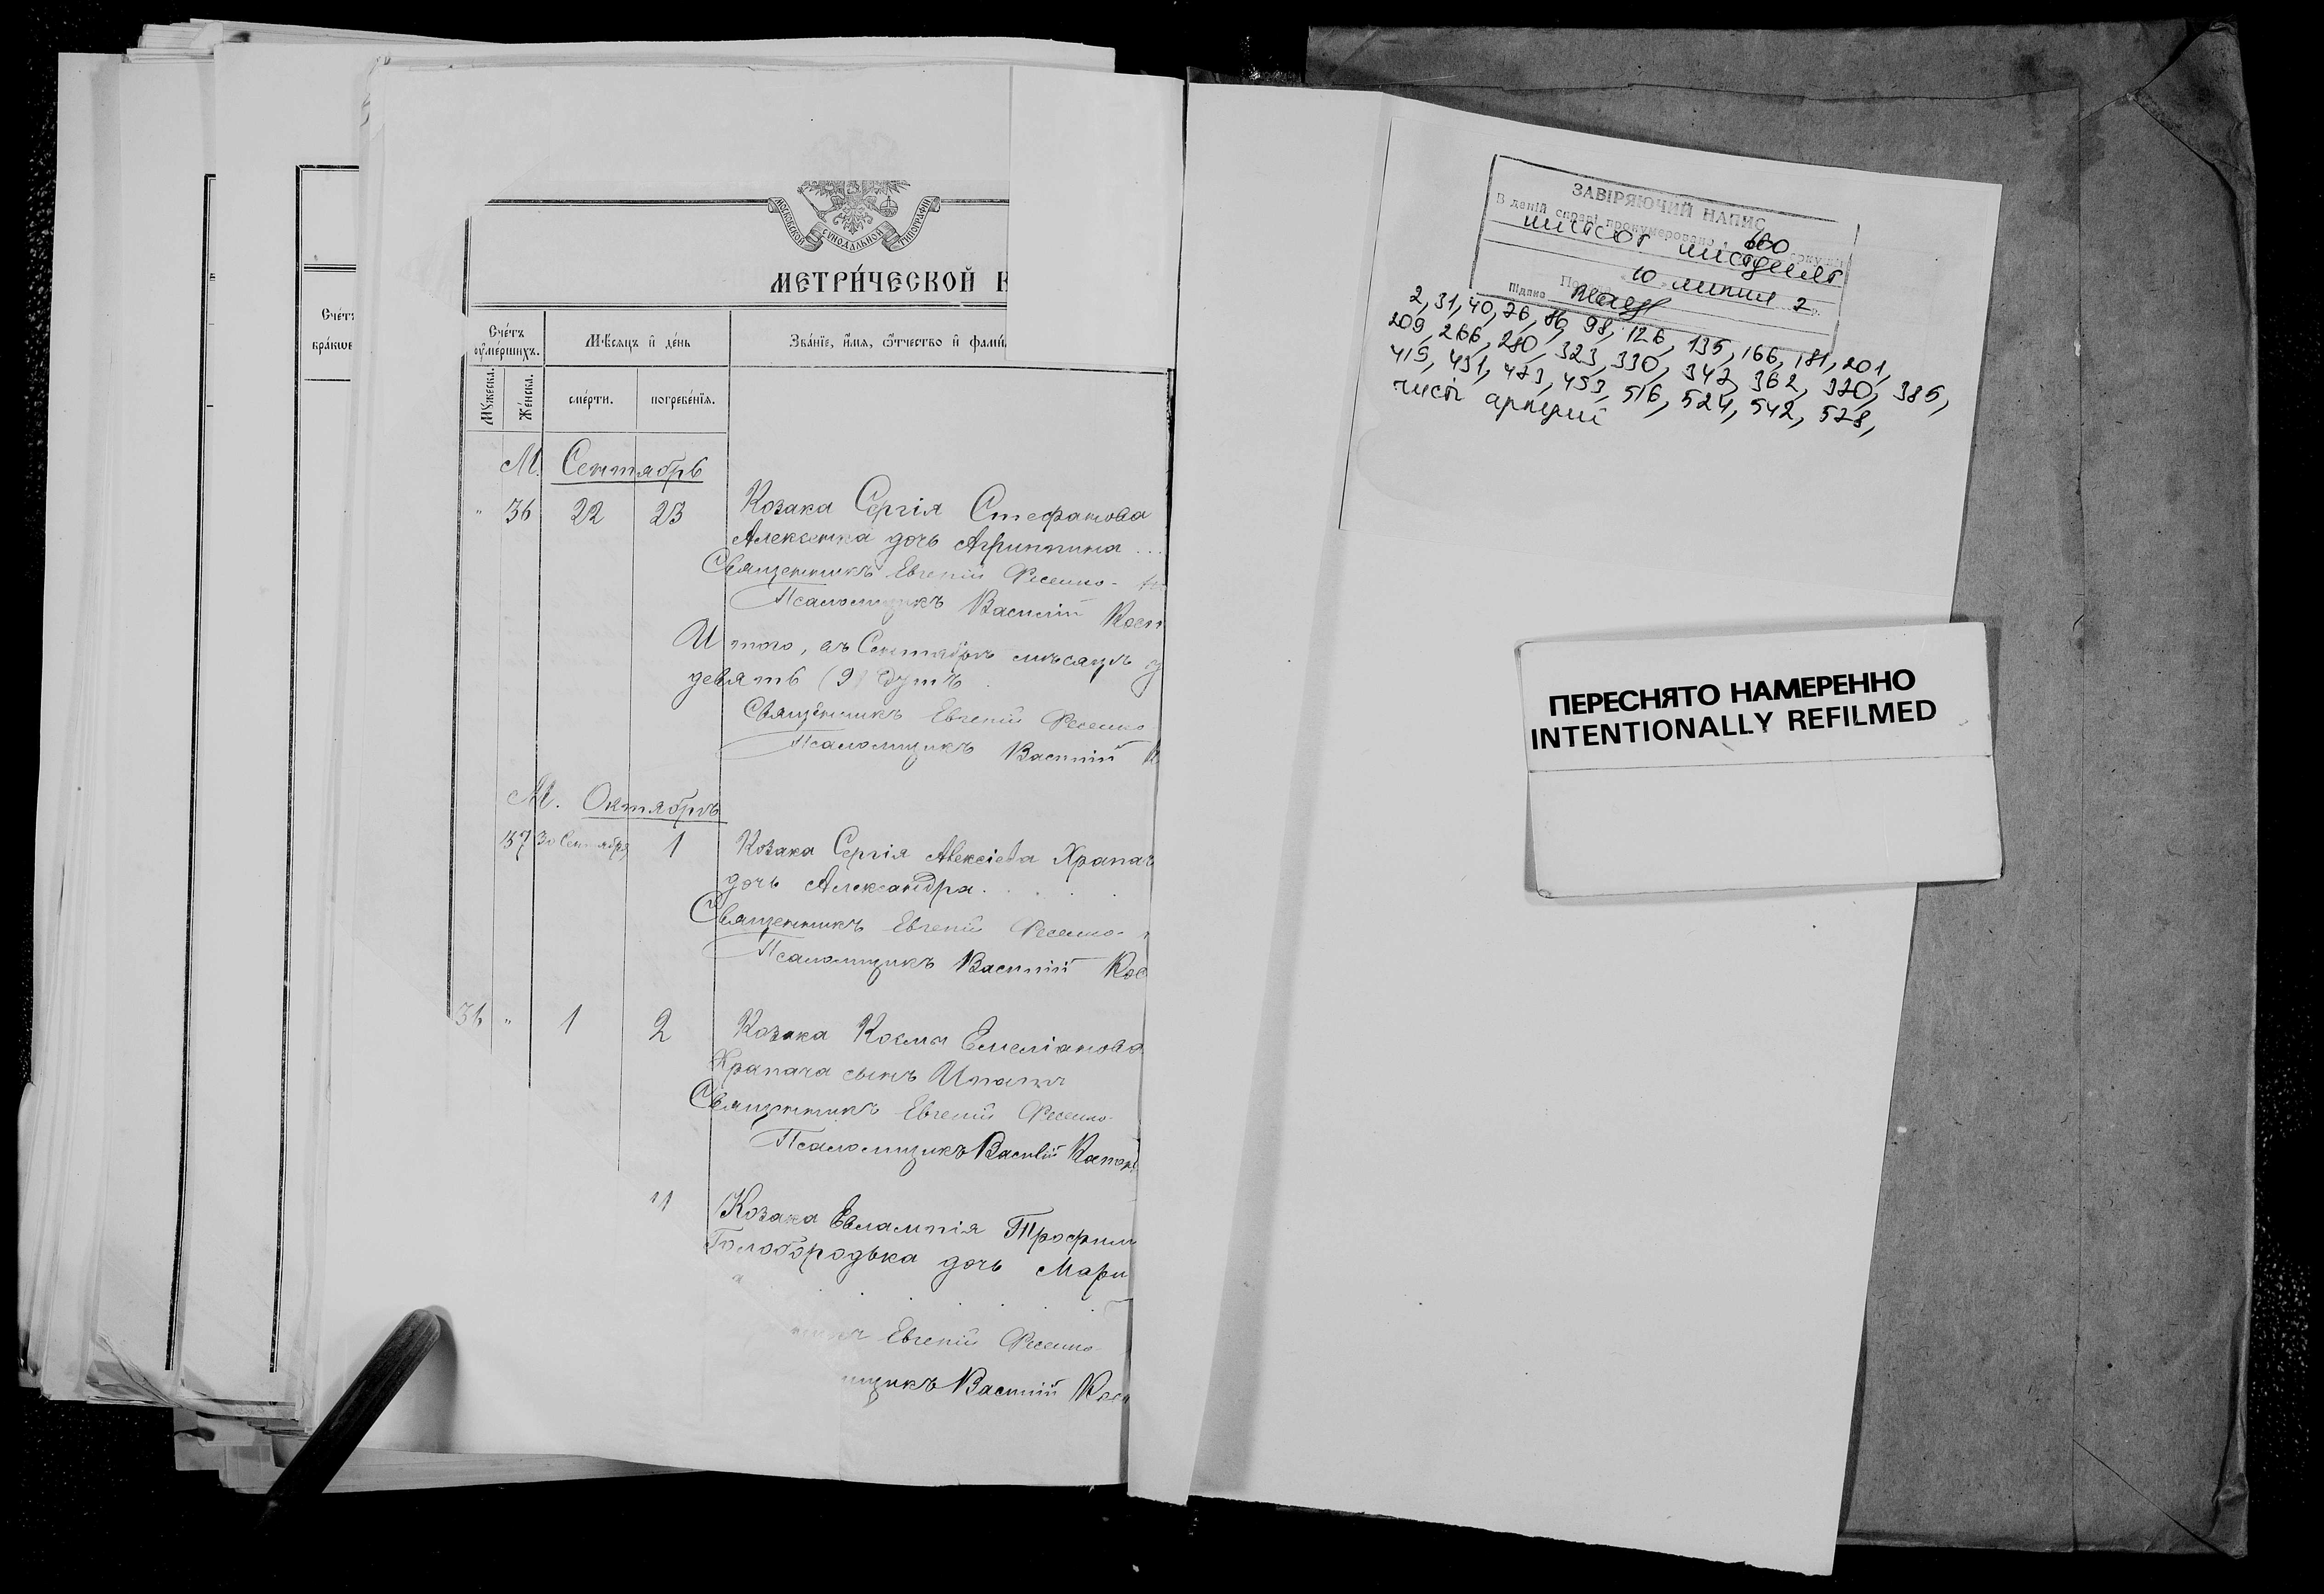 Счетъ
бракѡв
МОСКОВСКОЙ СѴНОДАЛЬНОЙ ТИПОГРАФІИ
МЕТРИ́ЧЕСКОЙ К
Сче́тъ ᲂу҆ме́ршихъ.
Мѣ́сѧцъ и҆ де́нь
Зва́нїе, и҆́мѧ, ѻ҆́тчество и҆ фами́
Мꙋ́жеска.
Же́нска.
сме́рти.
погребе́нїѧ.
М. Сентябрь
" 36 22 23 Козака Сергія Стефанова
Алексенка дочь Агриппина ...
Священникъ Евгеній Фесенко
Псаломщикъ Василій
Итого, въ Сентябрѣ мѣсяцѣ у
девять (9) душъ
Священникъ Евгеній Фесенко
Псаломщикъ Василій К
М. Октябрь
37 30 Сентября 1 Козака Сергія Алексіева Храпач
дочь Александра.
Священникъ Евгеній Фесенко
Псаломщикъ Василій
36 " 1 2 Козака Космы Емеліанова
Храпача сынъ Игнатъ
Священникъ Евгеній Фесенко
Псаломщикъ Василій
11 Козака Евлампія Трофим
Голобородька дочь Мари
Евгеній Фесенко
щикъ Василій
ЗАВІРЯЮЧИЙ НАПИС
В даній справі пронумеровано 600
шістсот шістдесят
10 липня
Підпис
2, 31, 40, 76, 86, 98, 126, 135, 166, 181, 201,
209, 266, 280, 323, 330, 347, 362, 370, 385,
415, 431, 473, 453, 516, 524, 542, 578,
чисті аркуші
ПЕРЕСНЯТО НАМЕРЕННО
INTENTIONALLY REFILMED